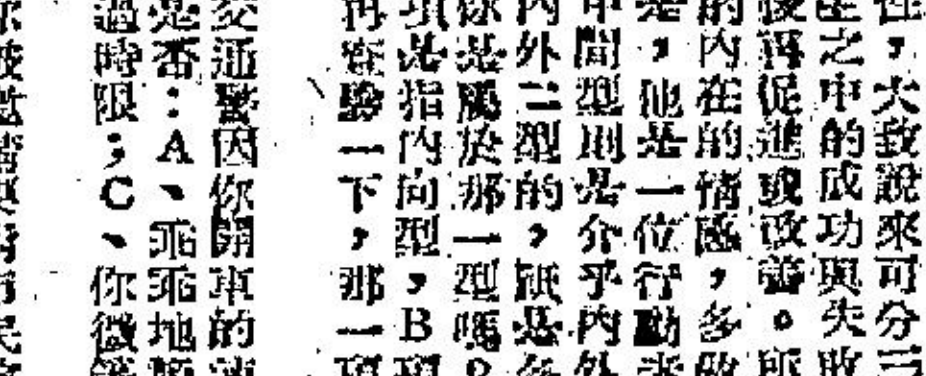 性，大致說來可分三
至之中的成功與失敗
後再促進或改善。所
的內在的情感，多做
是，他是一位行動來
中間型則是介乎內外
內外二型的，祇是各
你是屬於那一型嗎？
項是指內向型，B項
再客驗一下，那一項
交通警因你開車的速
是否：A、乖乖地
過時限；C、你微
你被邀